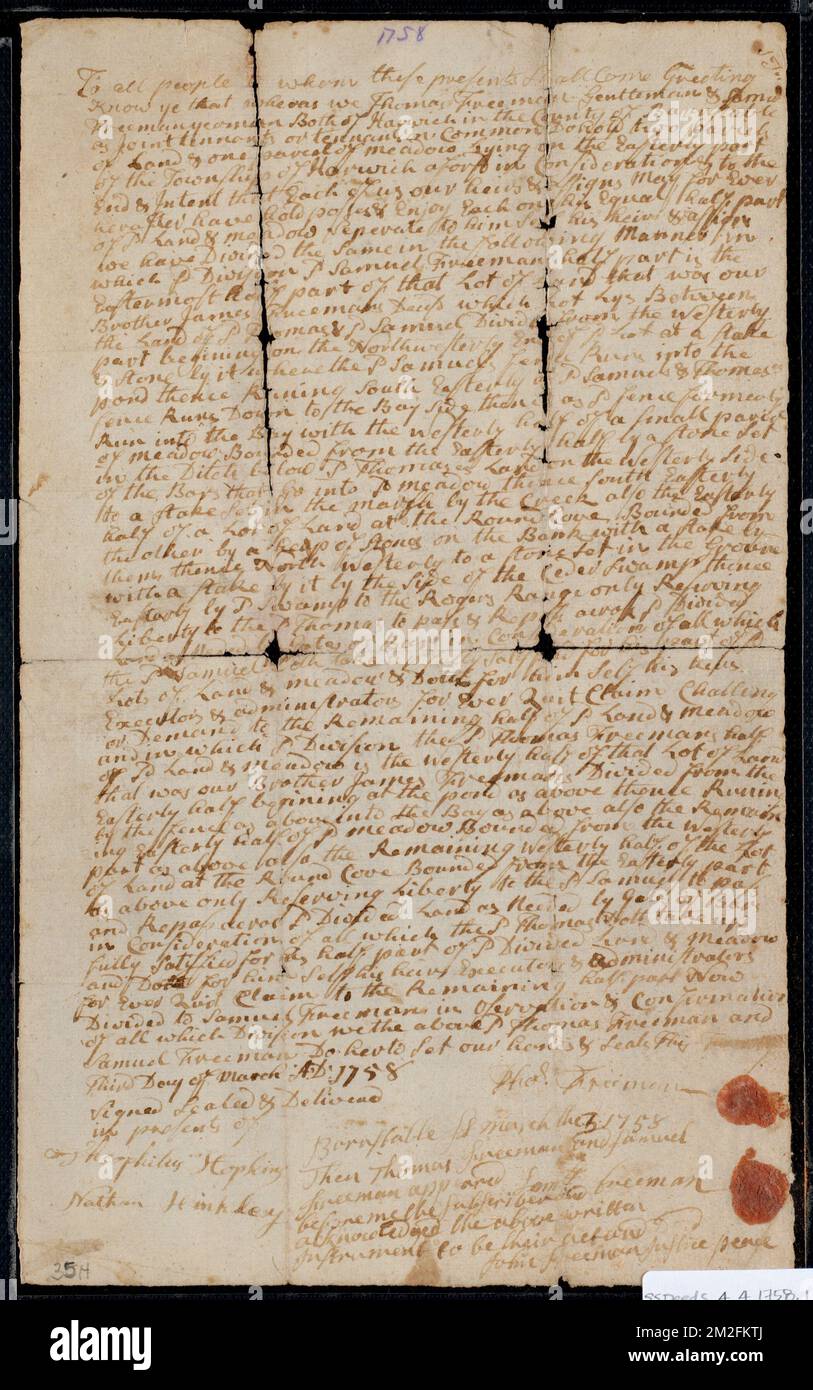 1758
To all people to whom these presents Shall Come Greeting
Know ye that wheras we Thomas Freeman Gentleman & Samll
Freeman yeoman Both of Harwich in the County of Barnstable
as Joint tennants or tennants in Common Do hold two parcels
of Land & one parcel of meadow Lying on the Easterly part
of the Township of Harwich aforsd in Consideration & to the
End & Intent that Each of us our heirs & assigns May for Ever
herafter have hold posses & Enjoy Each one his Equal half part
of sd Land & meadow Seperate to him Self his heirs & assigns
we have Divided the Same in the following Manner in
which sd Division sd Samuel Freemans half part is the
Eastermost half part of that Lot of Land that was our
Brother James Freemans Decesd which Lot Lys Between
the Land of sd Thomas & sd Samuel Divided from the westerly
part begining on the Northwesterly End of sd Lot at a stake
& stone by it where the sd Samuels fence Runs into the
pond thence Runing South Easterly as sd Samuels & Thomas's
fence Runs Down to the Bay Side thence as sd fence formerly
Run into the Bay with the westerly half of a small parcel
of meadow Bounded from the Easterly half by a stone Set
in the Ditch below sd Thomases Land on the westerly Side
of the Bars that Go into sd meadow thence South Easterly
to a stake Set in the marsh by the Creek also the Easterly
half of a Lot of Land at the Round Cove Bounded from
the other by a heap of stones on the Bank with a stake by
them thence North westerly to a stone Set in the Ground
with a stake by it by the Side of the Ceder Swamp thence
Easterly by sd Swamp to the Rogers Range only Reserving
Liberty to the sd Thomas to pass & Repass across sd Divided
Land in Consideration of all which
the sd Samuel Doth
Lots of Land & meadow & Doth for him Self his heirs
Executors & administrators for Ever Quit Claim Challeng
or Demand to the Remaining half of sd Land & meadow
and in which sd Division the sd Thomas Freemans half
of sd Land & meadow is the westerly half of that Lot of Land
that was our Brother James Freemans Divided from the
Easterly half begining at the pond as above thence Runing
by the fence as above into the Bay as above also the Remain
ing Easterly half of sd meadow Bounded from the westerly
part as above also the Remaining westerly half of the Lot
of Land at the Round Cove Bounded from the Easterly part
as above only Reserving Liberty to the sd Samuel to pass
and Repass across sd Divided Land as Needed by Gates or Bars
in Consideration of all which the sd Thomas Doth
fully Satisfied for his half part of sd Divided Land & meadow
and Doth for him Self his heirs Executors & administrators
for Ever Quit Claim to the Remaining half part Now
Divided to Samuel Freemans in Observation & Confirmation
of all which Division we the above sd Thomas Freeman and
Samuel Freeman Do herto Set our hands & Seals This
Third Day of March AD: 1758
Signed Sealed & Delivered
in presents of
Thos. Freeman
Theophilus Hopkins
Nathan Hinkley
Barnstable ss March the 3 1758
Then Thomas Freeman and Samuel
Freeman appeared
Saml Freeman
before me the Subscriber and
acknowledged the above written
instrument to be their act and
John Freeman Justice peace
35H
SSDeeds A.4.1758.1
alamy
Image ID: 2M2FKTJ
www.alamy.com